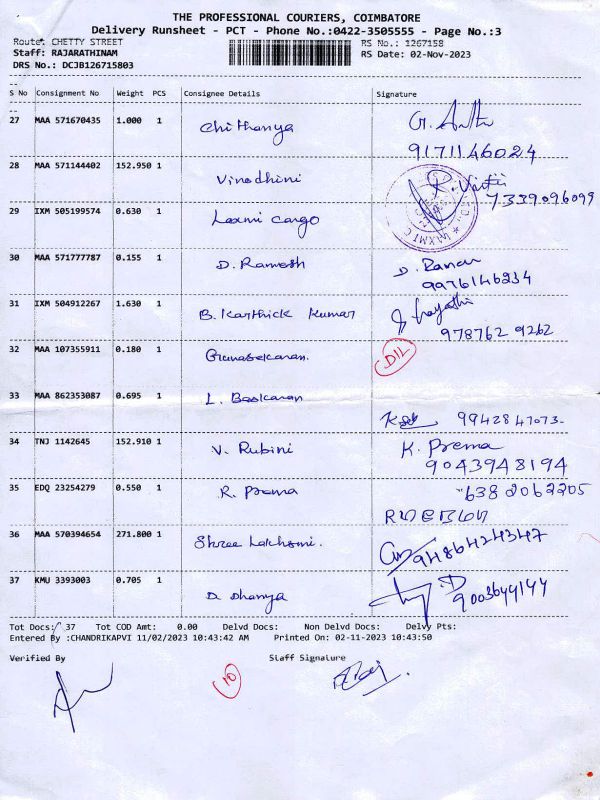 THE PROFESSIONAL COURIERS, COIMBATORE
Delivery Runsheet - PCT - Phone No.:0422-3505555 - Page No.:3
Route: CHETTY STREET RS No.: 1267158
Staff: RAJARATHINAM RS Date: 02-Nov-2023
DRS No.: DCJB126715803
S No Consignment No Weight PCS Consignee Details Signature
27 MAA 571670435 1.000 1 Chithanya
9171146024
28 MAA 571144402 152.950 1 Vinodhini
7339096099
29 IXM 505199574 0.630 1 Laxmi cargo
30 MAA 571777787 0.155 1 D. Ramesh D. Raman
9976146234
31 IXM 504912267 1.630 1 B. Karthick Kumar
978762 9262
32 MAA 107355911 0.180 1 Gunasekaran.
33 MAA 862353087 0.695 1 L. Baskaran
9942847073-
34 TNJ 1142645 152.910 1 V. Rubini K. Prema
9043948194
35 EDQ 23254279 0.550 1 R. Prema 638 2062205
36 MAA 570394654 271.800 1 Shree Lakhsmi. 9486424347
37 KMU 3393003 0.705 1 D. Dhanya
9003644144
Tot Docs: 37 Tot COD Amt: 0.00 Delvd Docs: Non Delvd Docs: Delvy Pts:
Entered By :CHANDRIKAPVI 11/02/2023 10:43:42 AM Printed On: 02-11-2023 10:43:50
Verified By Staff Signature
10